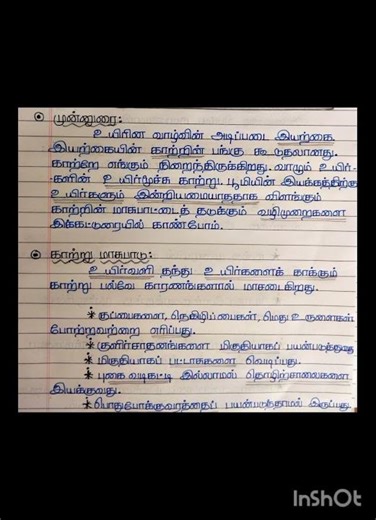 முன்னுரை:
உயிரின வாழ்வின் அடிப்படை இயற்கை.
இயற்கையின் காற்றின் பங்கு கூடுதலானது.
காற்றே எங்கும் நிறைந்திருக்கிறது. வாழும் உயிர்-
களின் உயிர்மூச்சு காற்று. பூமியின் இயக்கத்திற்கு
உயிர்களும் இன்றியமையாததாக விளங்கும்
காற்றின் மாசுபாட்டைத் தடுக்கும் வழிமுறைகளை
இக்கட்டுரையில் காண்போம்.
காற்று மாசுபாடு:
உயிர்வளி தந்து உயிர்களைக் காக்கும்
காற்று பல்வேறு காரணங்களால் மாசடைகிறது.
* குப்பைகளை, நெகிழிப்பைகள், மெது உருளைகள்
போற்றவற்றை எரிப்பது.
* குளிர்சாதனங்களை மிகுதியாகப் பயன்படுத்துவது
* மிகுதியாகப் பட்டாசுகளை வெடிப்பது.
* புகை வடிகட்டி இல்லாமல் தொழிற்சாலைகளை
இயக்குவது.
* பொதுபோக்குவரத்தைப் பயன்படுத்தாமல் இருப்பது.
InShOt